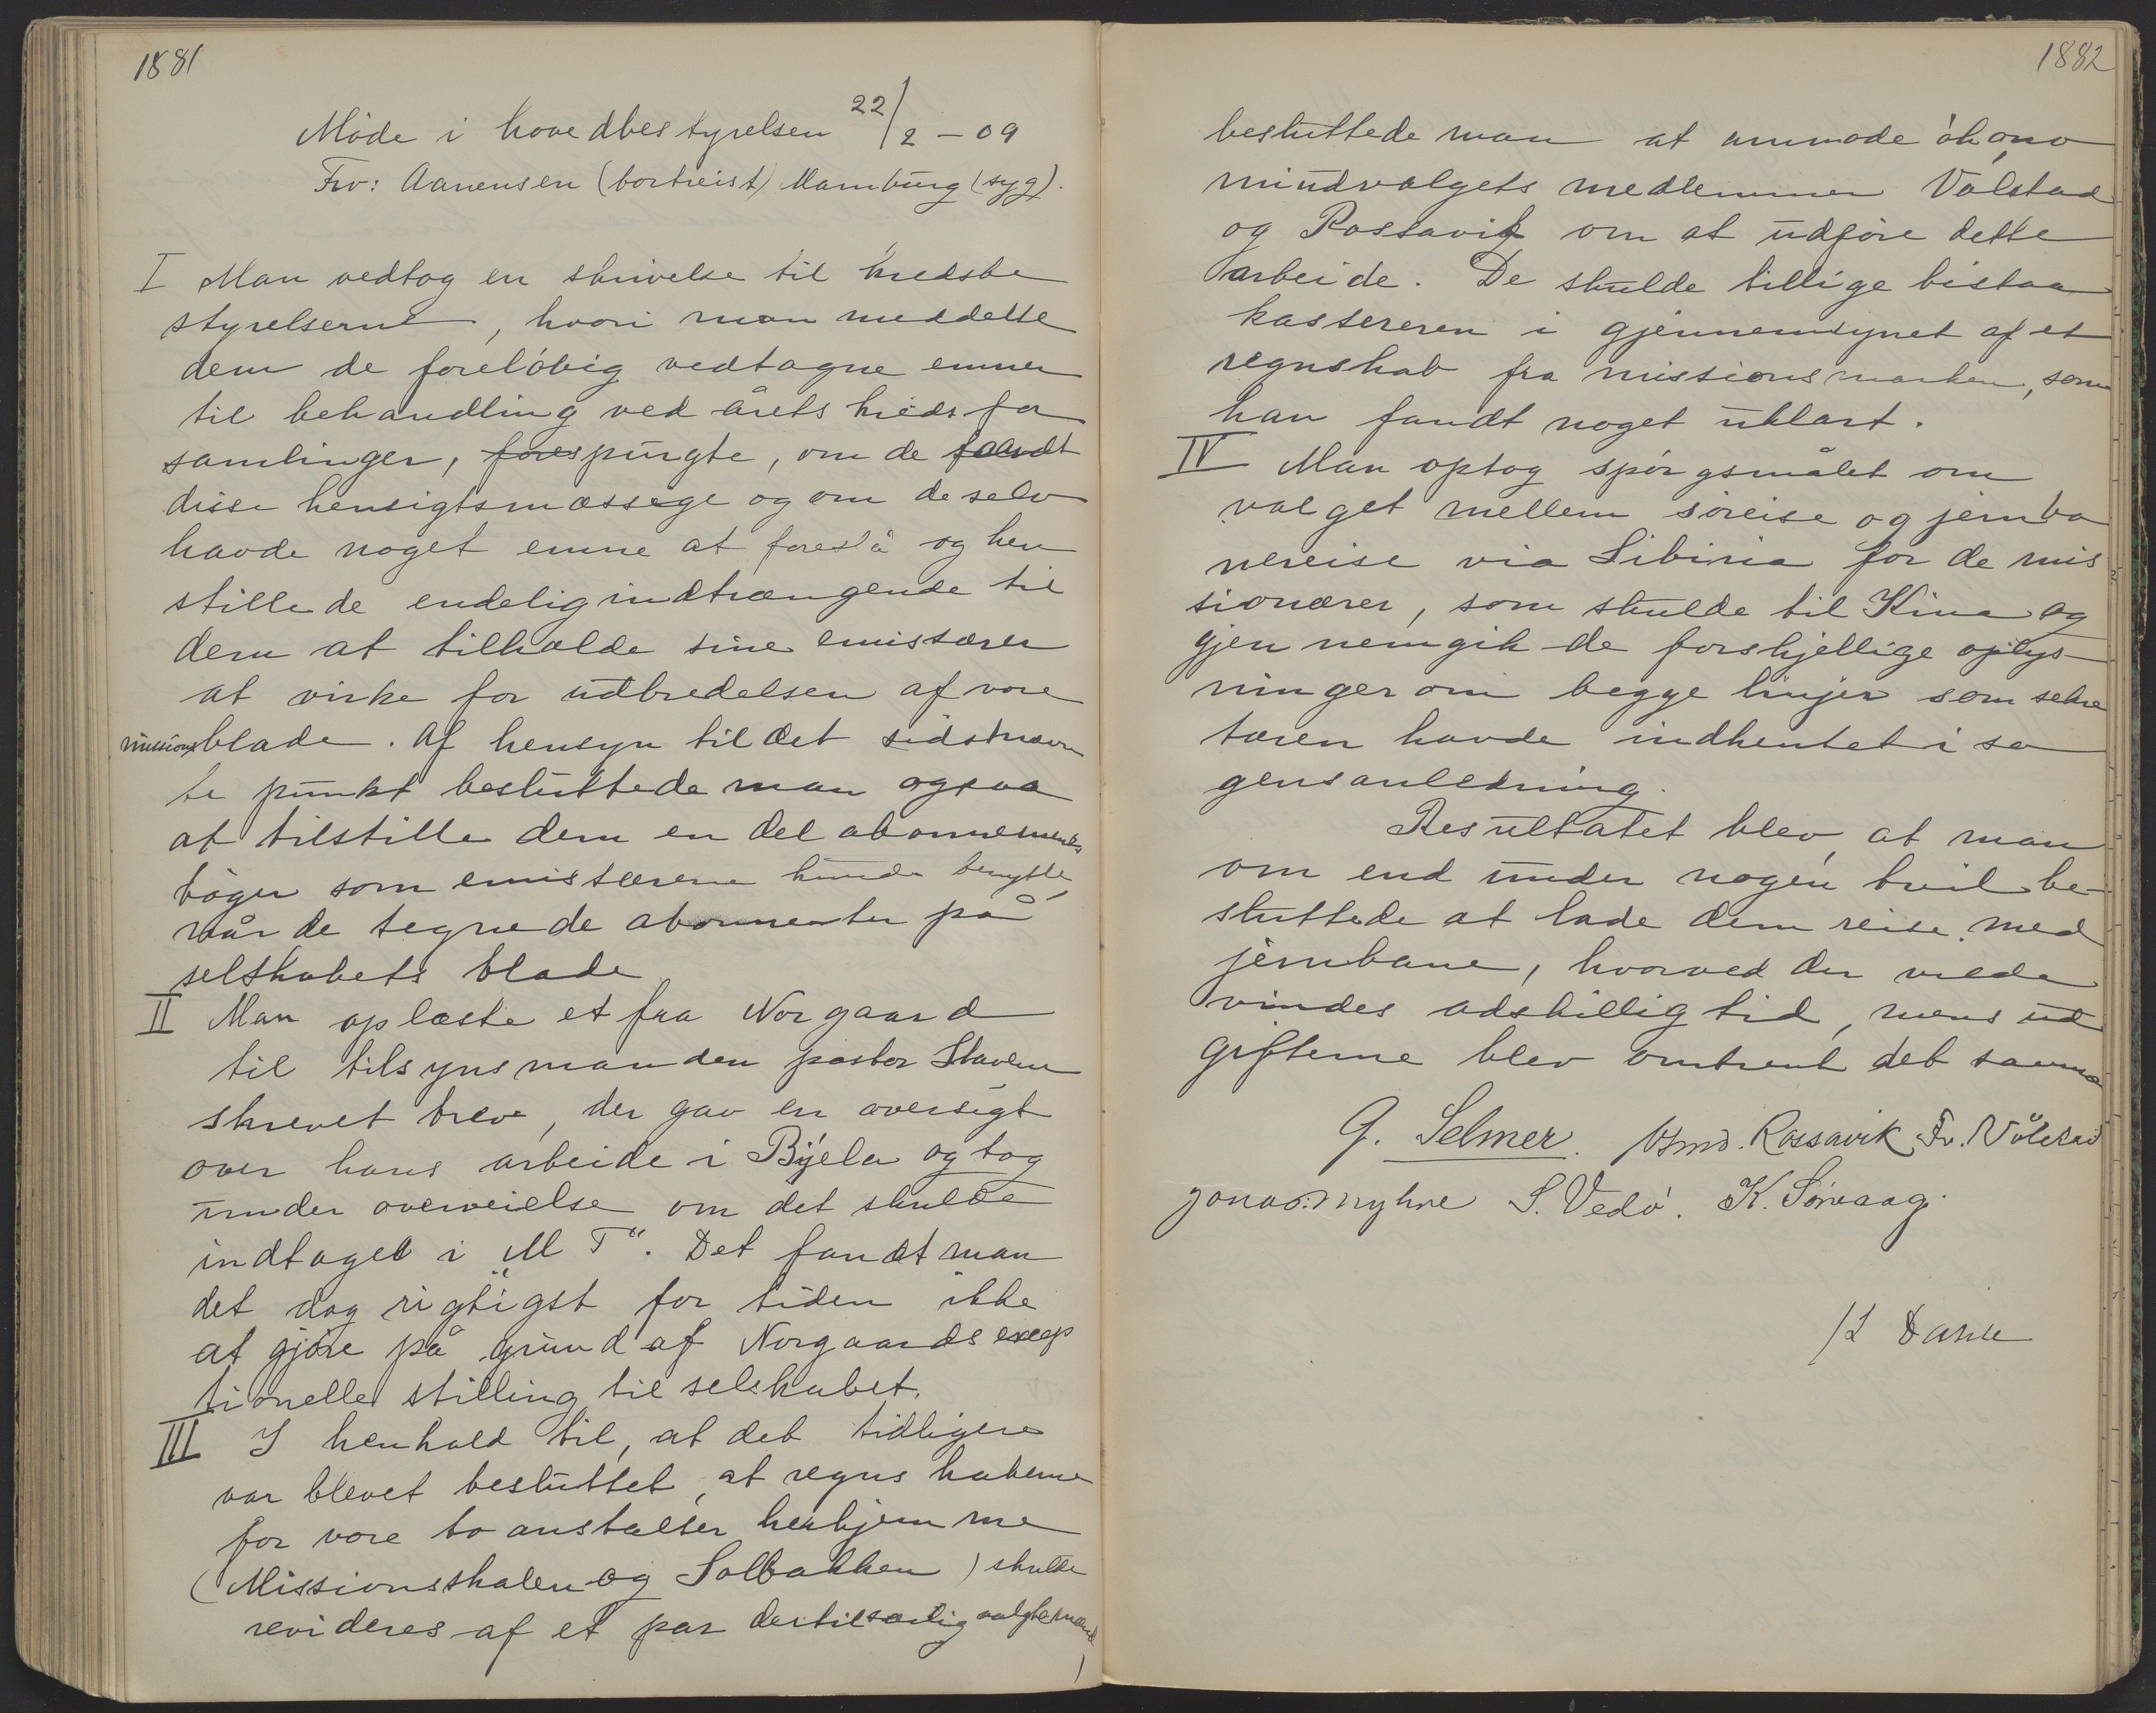 1881
Möde i hovedbestyrelsen 22/2 - 09
Frv: Aanensen (bortreist) Mamburg (syg).
I Man vedtog en skrivelse til kredsbe
styrelserne, hvori man meddelte
dem de forelöbig vedtagne emner
til behandling ved årets kredsfor
samlinger, forespurgte, om de fandt
disse hensigtsmæssige og om de selv
havde noget emne at foreslå og hen
stillede endelig indtrængende til
dem at tilholde sine emissærer
at virke for udbredelsen af vore
missionsblade. Af hensyn til det sidstnævn
te punkt besluttede man ogsaa
at tilstille dem en del abonnements
böger som emissærerne kunde benytte,
når de tegnede abonnenter på
selskabets blade
II Man oplæste et fra Norgaard
til tilsynsmanden pastor Stavlem
skrevet brev, der gav en oversigt
over hans arbeide i Bÿela og tog
under overveielse om det skulde
indtaget i „M T“. Det fandt man
det dog rigtigst for tiden ikke
at gjöre på grund af Norgaards excep
tionelle stilling til selskabet.
III I henhold til, at det tidligere
var blevet besluttet, at regnskaberne
for vore to anstalter herhjemme
(Missionsskolen og Solbakken) skulde
revideres af et par dertil særlig valgte mænd,
1882
besluttede man at anmode ökono
miudvalgets medlemmer Völstad
og Rossavik om at udföre dette
arbeide. De skulde tillige bistaa
kassereren i gjennemsynet af et
regnskab fra missionsmarken, som
han fandt noget uklart.
IV Man optog spörgsmålet om
valget mellem söreise og jernba
nereise via Sibiria for de mis
sionærer, som skulde til Kina og
gjennemgik de forskjellige oplys-
ninger om begge linjer som sekre
tæren havde indhentet i sa
gens anledning.
Resultatet blev, at man
om end under nogen tvil be-
sluttede at lade dem reise med
jernbane, hvorved der vilde
vindes adskillig tid, mens ud
gifterne blev omtrent det samme
G. Selmer. Asmd. Rossavik Fr. Völstad
Jonas: Myhre S. Vedö. K. Sörvaag.
/L Dahle